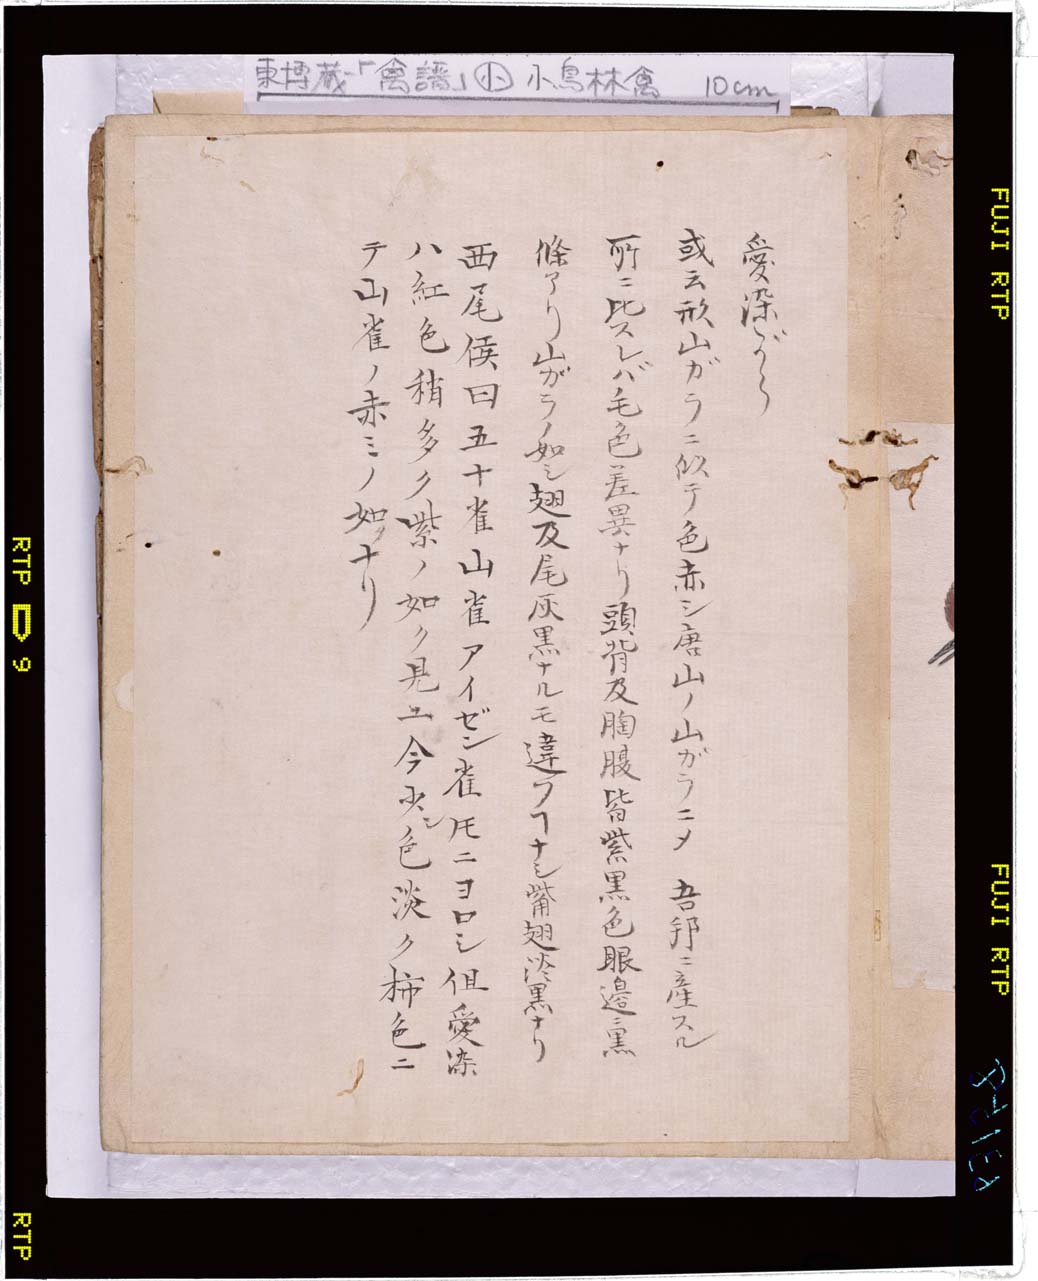 東博蔵「禽譜」㊉ 小鳥林禽 10cm
愛染がら
或云形山ガラニ似テ色赤シ唐山ノ山ガラニメ 吾邦ニ産スル
所ニ比スレバ毛色差異ナリ頭背及胸腹皆紫黒色眼邉ニ黒
條アリ山ガラノ如シ翅及尾灰黒ナルモ違フヿナシ觜翅淡黒ナリ
西尾侯曰五十雀山雀アイゼン雀厇ニヨロシ但愛染
ハ紅色稍多ク紫ノ如ク見ユ今少シ色淡ク柿色ニ
テ山雀ノ赤ミノ如クナリ
FUJI RTP
FUJI RTP
RTP
9
RTP